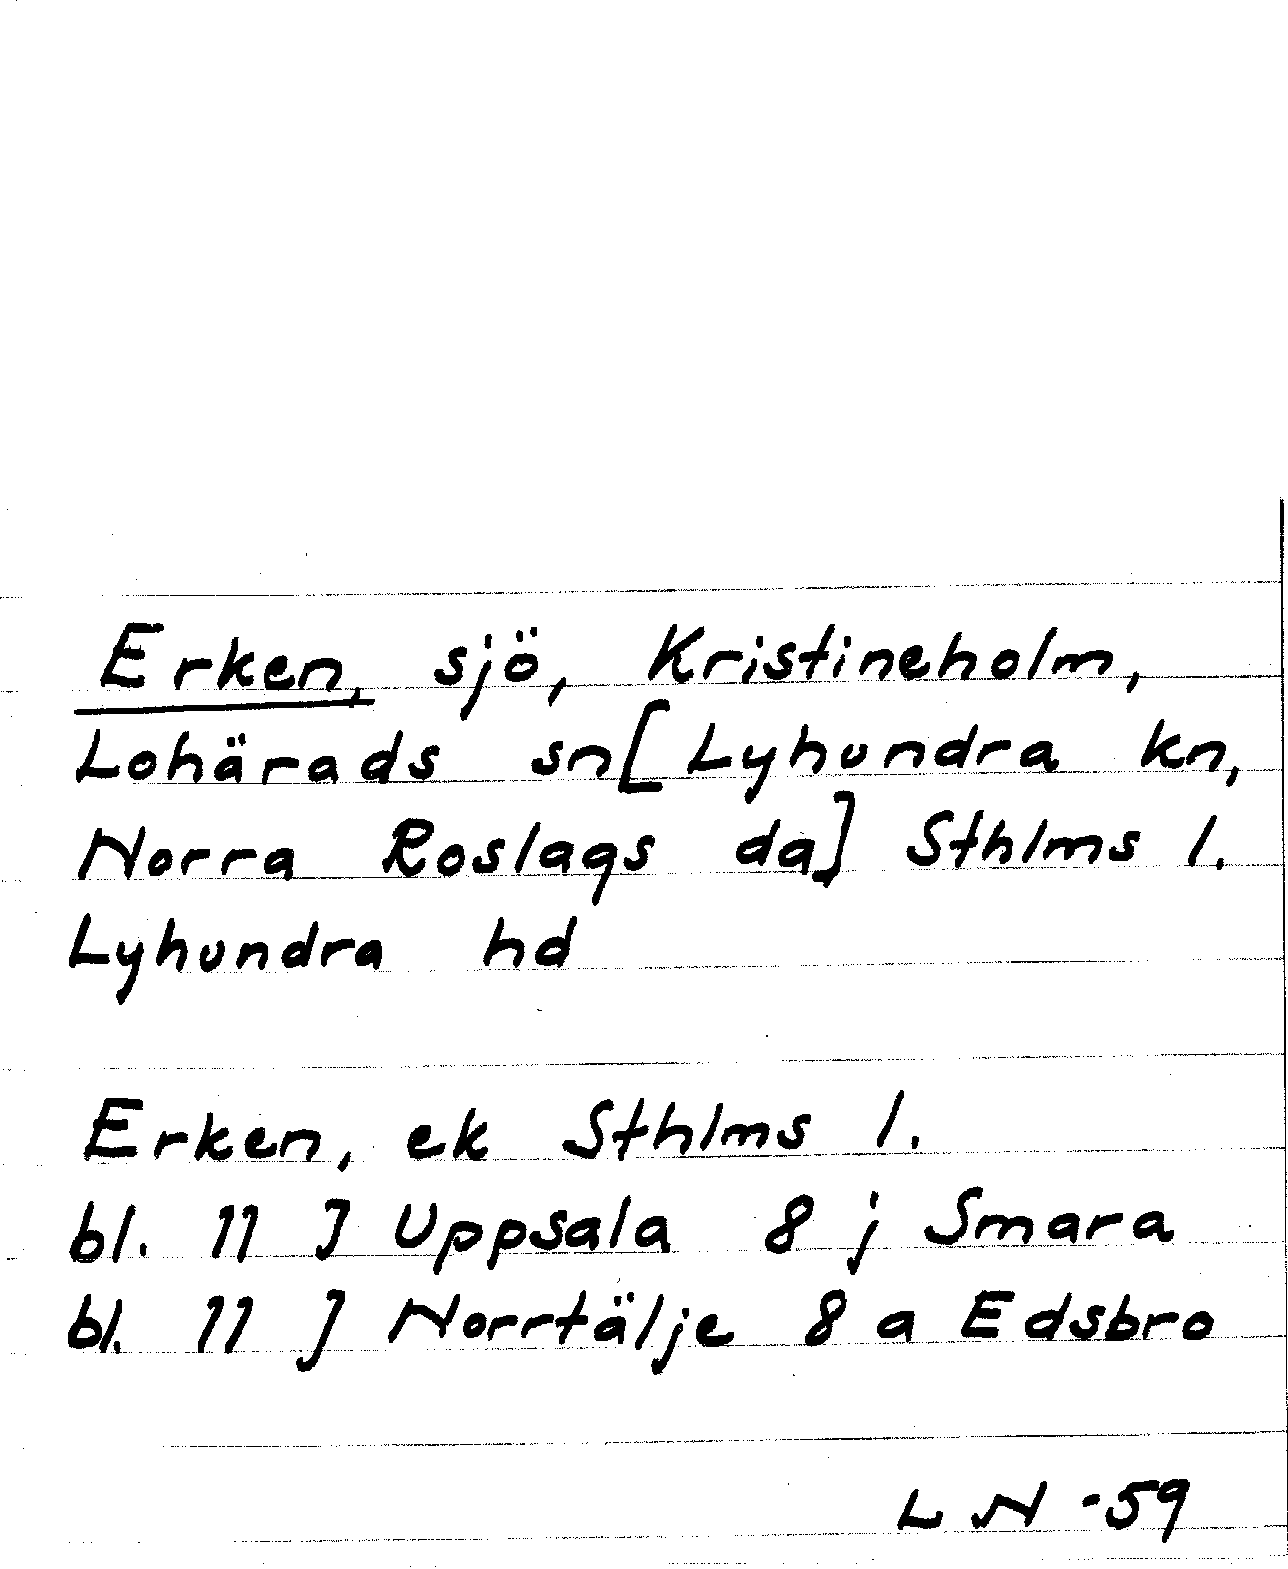 Erken, sjö, Kristineholm,
Lohärads sn [Lyhundra kn,
Norra Roslags da] Sthlms l.
Lyhundra hd
Erken, ek Sthlms l.
bl. 11 J Uppsala 8 j Smara
bl. 11 J Norrtälje 8 a Edsbro
L N -59